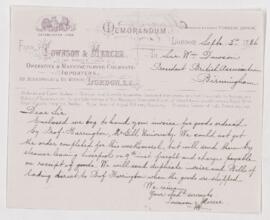 MEMORANDUM
London, Sept. 5th 1886
From
Townson & Mercer
To
Sir Wm Dawson
Operative & Manufacturing Chemists
President British Association
Importers
Birmingham
LONDON, E.C.
Dear Sir
Enclosed we beg to hand your invoice for goods ordered
by Prof Harrington, McGill University. We could not get
the order completed for this week's boat, but will send them by
steamer leaving Liverpool
freight and charges payable
on receipt of goods. We will send duplicate invoice and Bills of
lading direct to Prof Harrington when the goods are shipped.
We remain
Yours faithfully
Townson & Mercer